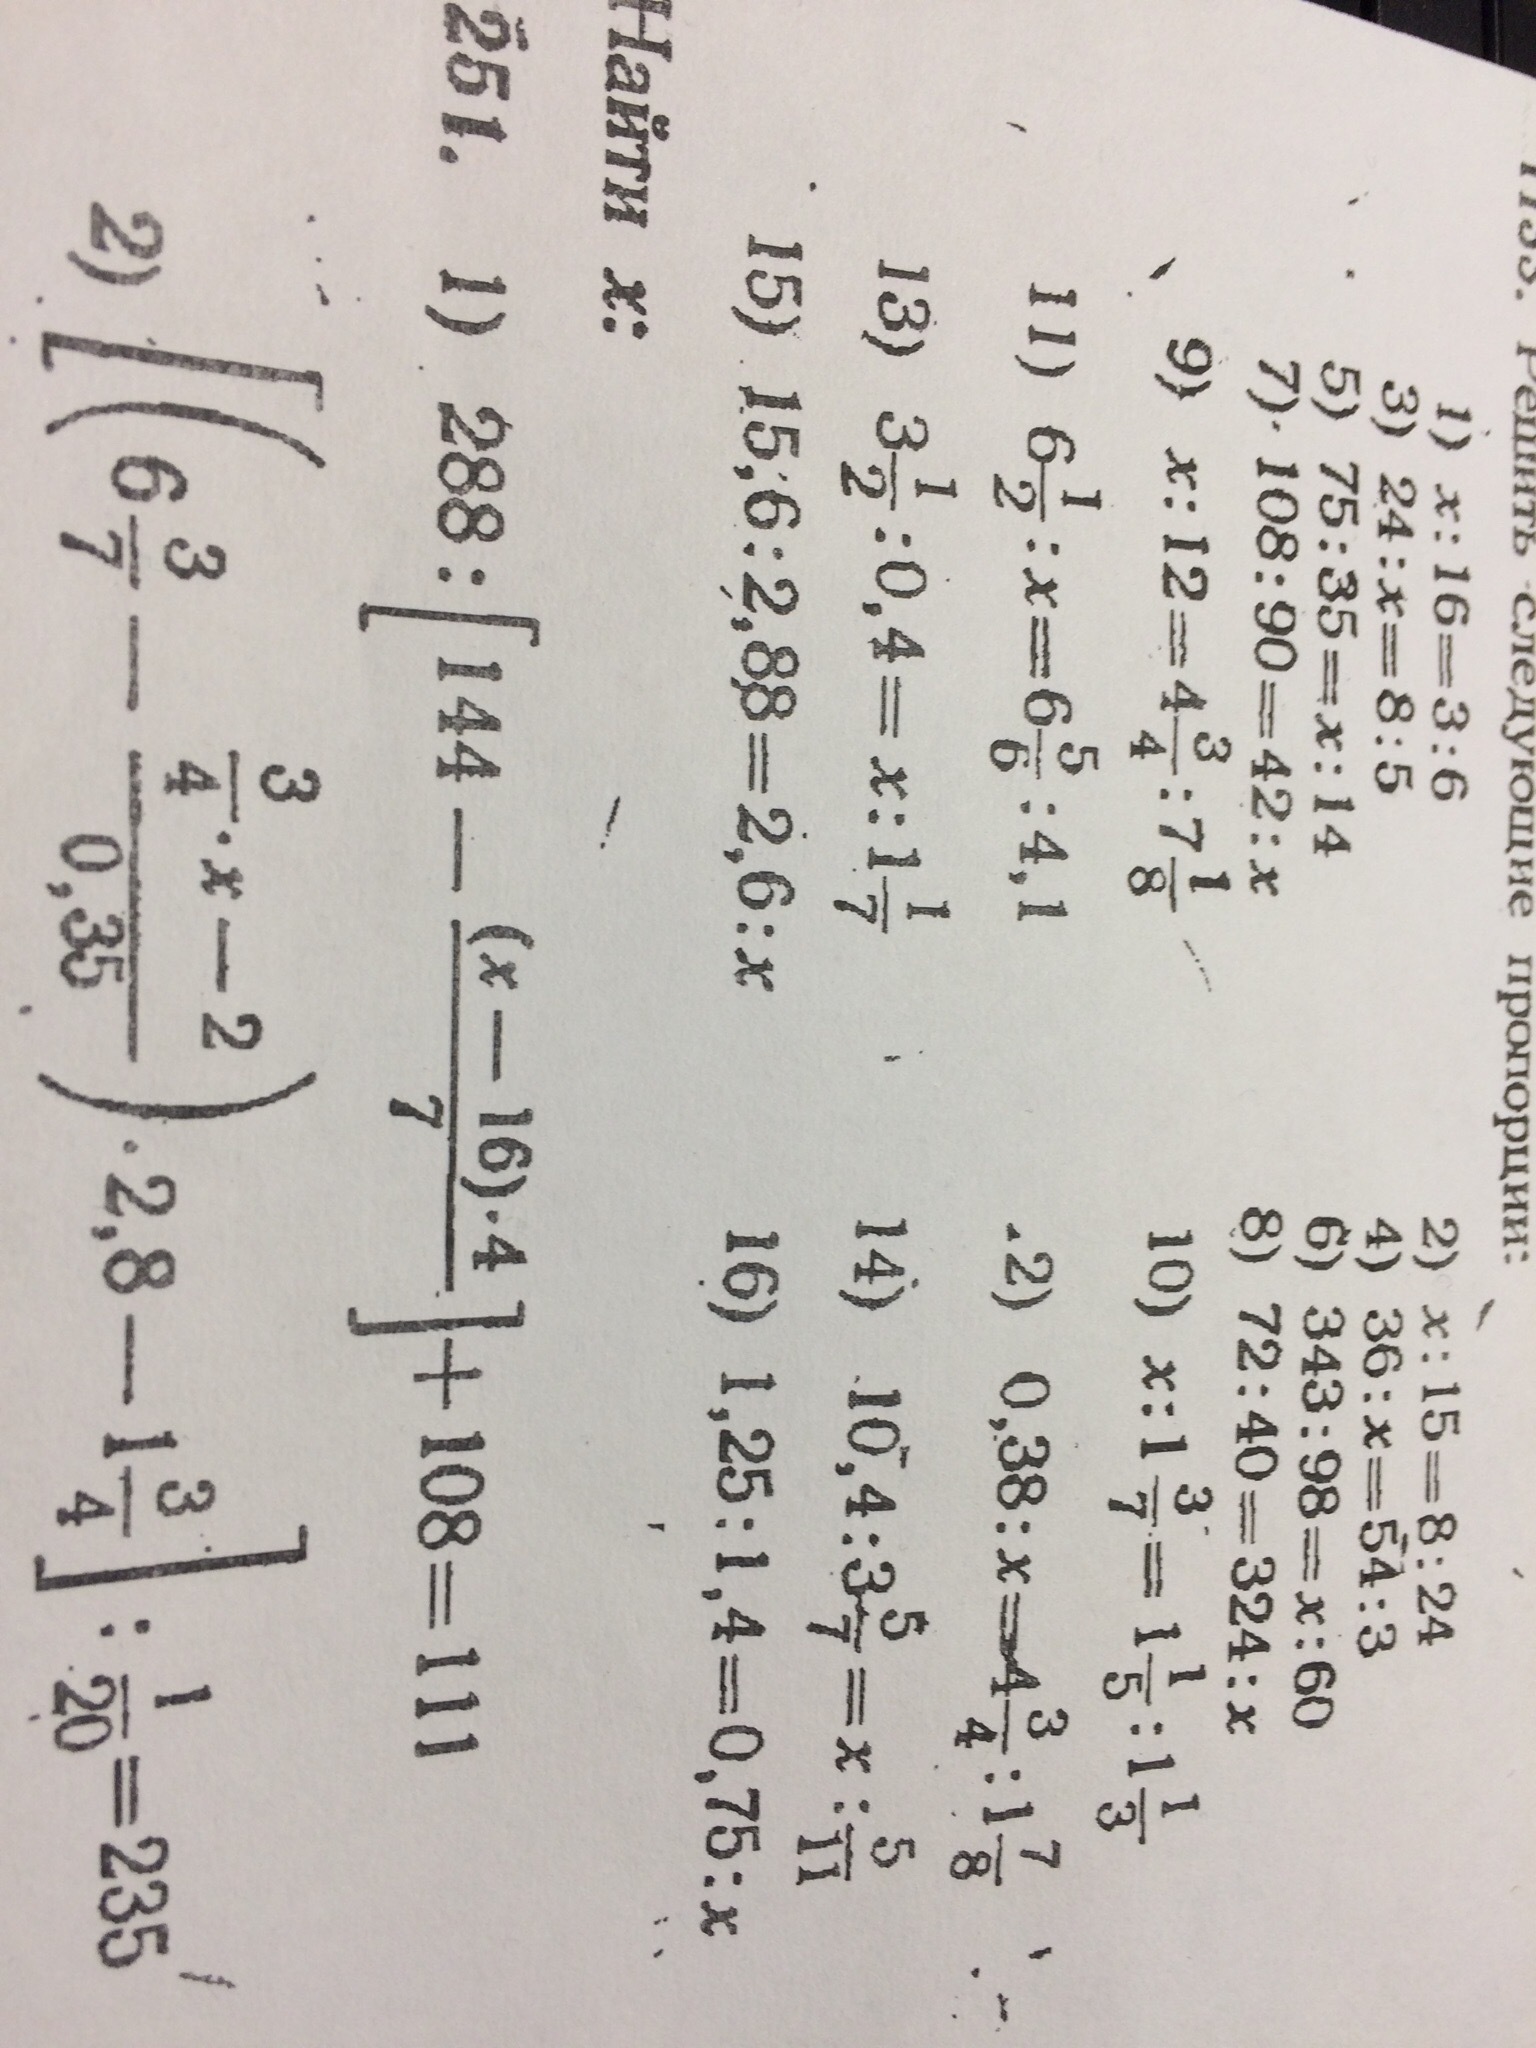 Решить следующие пропорции:
1) x : 16 = 3 : 6 2) x : 15 = 8 : 24
3) 24 : x = 8 : 5 4) 36 : x = 54 : 3
5) 75 : 35 = x : 14 6) 343 : 98 = x : 60
7) 108 : 90 = 42 : x 8) 72 : 40 = 324 : x
9) x : 12 = 4 3/4 : 7 1/8 10) x : 1 3/7 = 1 1/5 : 1 1/3
11) 6 1/2 : x = 6 5/6 : 4,1 2) 0,38 : x = 4 3/4 : 1 7/8
13) 3 1/2 : 0,4 = x : 1 1/7 14) 10,4 : 3 5/7 = x : 5/11
15) 15,6 : 2,88 = 2,6 : x 16) 1,25 : 1,4 = 0,75 : x
Найти x:
251. 1) 288 : [144 − (x − 16) · 4 / 7] + 108 = 111
2) [(6 3/7 − (3/4 · x − 2) / 0,35) · 2,8 − 1 3/4] : 1/20 = 235